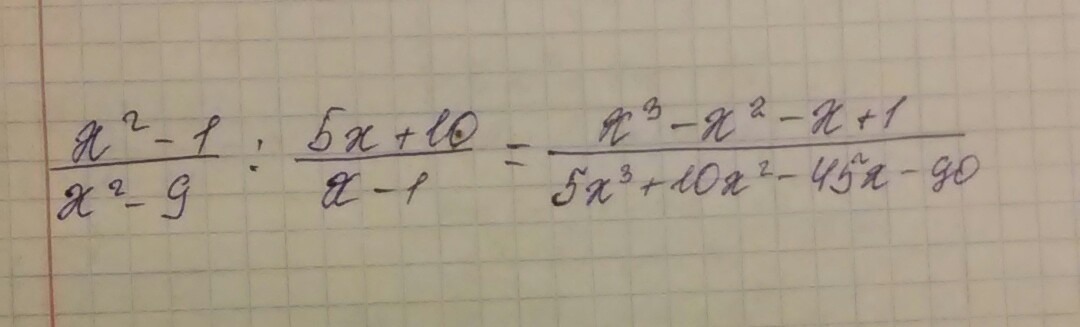 x² - 1 / x² - 9 : 5x + 10 / x - 1 = x³ - x² - x + 1 / 5x³ + 10x² - 45x - 90